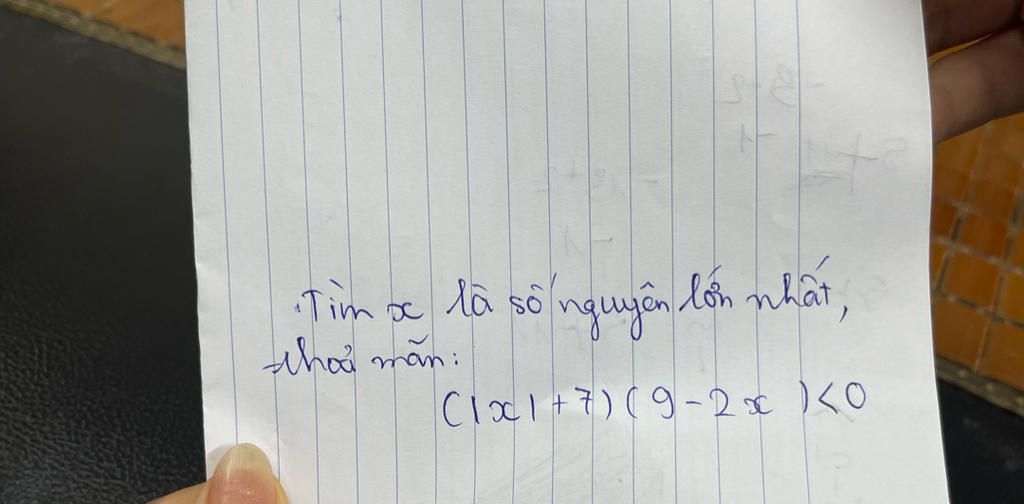 .Tìm x là số nguyên lớn nhất,
thoả mãn:
(|x|+7)(9-2x)<0